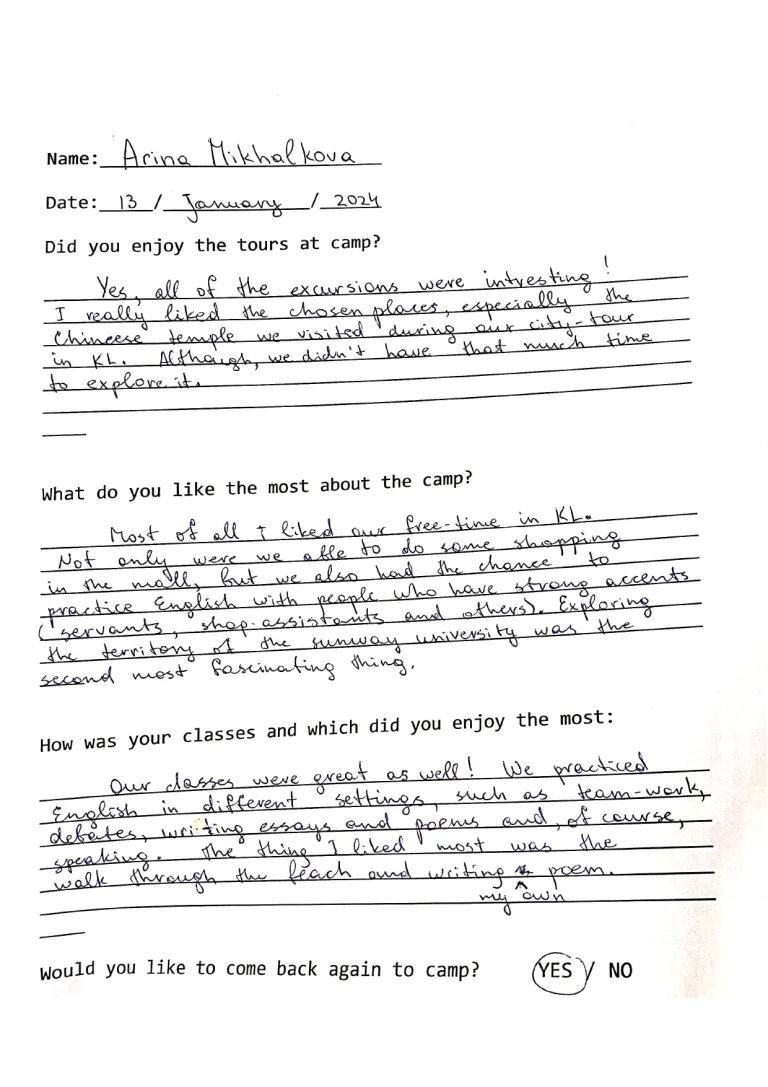 Name: Arina Mikhalkova
Date: 13 / January / 2024
Did you enjoy the tours at camp?
Yes, all of the excursions were intresting!
I really liked the chosen places, especially the
Chineese temple we visited during our city-tour
in KL. Although, we didn't have that much time
to explore it.
What do you like the most about the camp?
Most of all I liked our free-time in KL.
Not only were we able to do some shopping
in the mall, but we also had the chance to
practice English with people who have strong accents
(servants, shop-assistants and others). Exploring
the territory of the sunway university was the
second most fascinating thing.
How was your classes and which did you enjoy the most:
Our classes were great as well! We practiced
English in different settings, such as team-work,
debates, writing essays and poems and, of course,
speaking. The thing I liked most was the
walk through the beach and writing poem.
my own
Would you like to come back again to camp? YES / NO